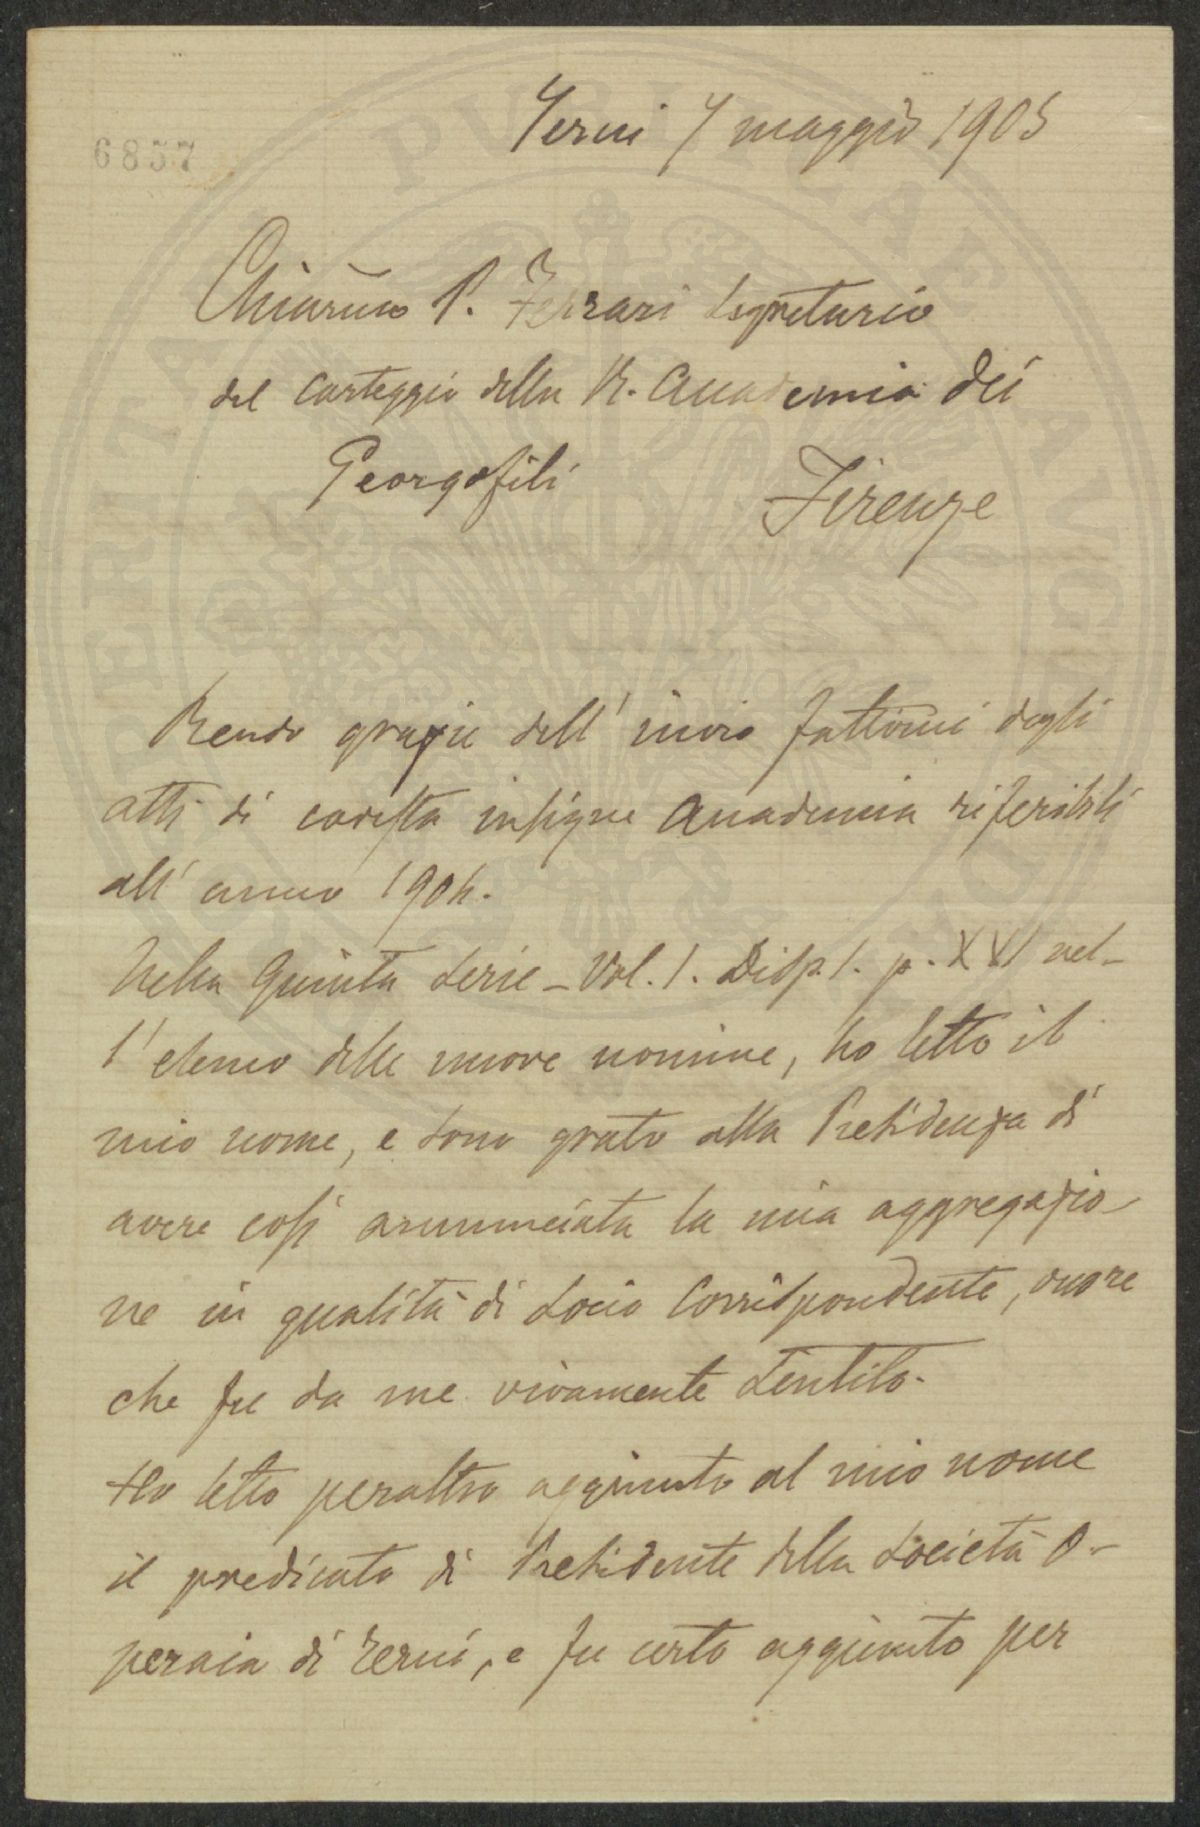 Terni 7 maggio 1905
6857
Chiarmo P. Ferrari Segretario
del Carteggio della R. Accademia dei
Georgofili
Firenze
Rendo grazie dell' invio fattomi degli
atti di codesta insigne Accademia riferibili
all' anno 1904.
Nella Quinta Serie – Vol. 1. Disp. 1. p. XVI nel-
l' elenco delle nuove nomine, ho letto il
mio nome, e sono grato alla Presidenza di
avere così annunciata la mia aggregazio-
ne in qualità di Socio Corrispondente, onore
che fu da me vivamente sentito.
Ho letto peraltro aggiunto al mio nome
il predicato di Presidente della Società O-
peraia di Terni, e fu certo aggiunto per